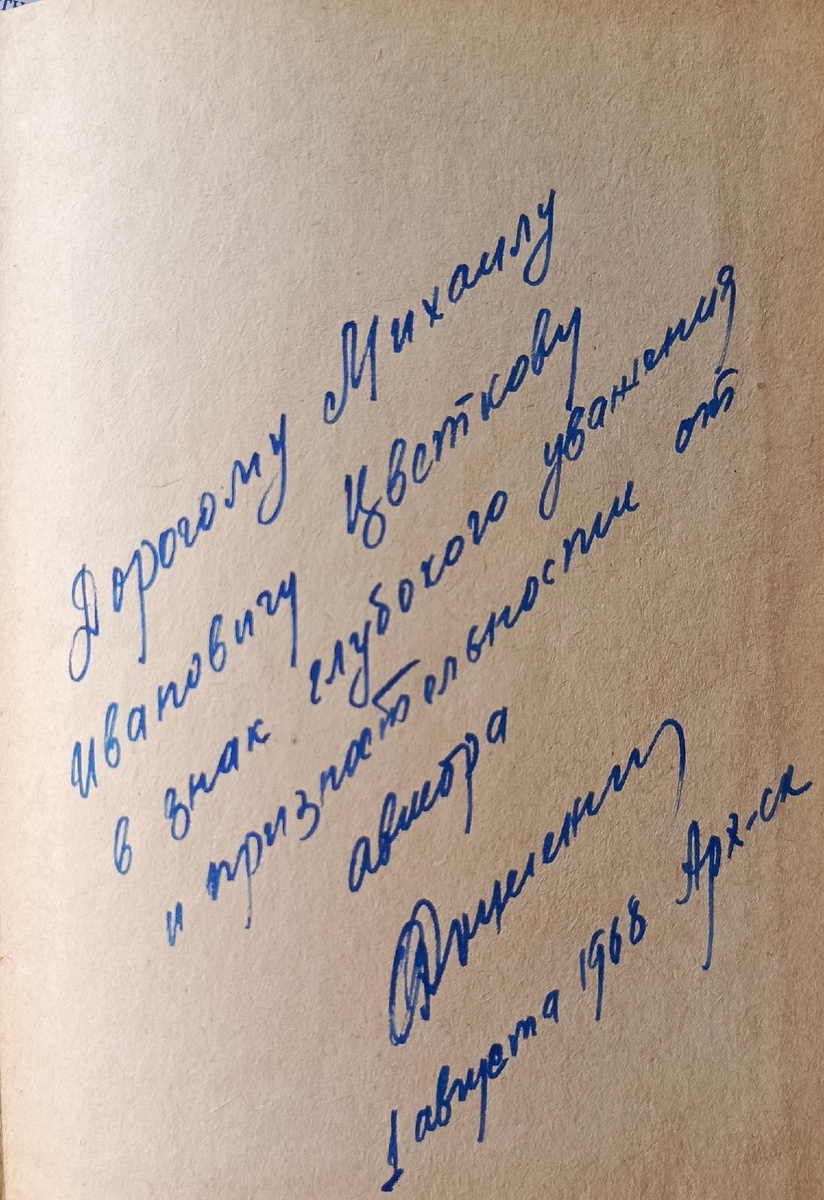 Дорогому Михаилу
Ивановичу Цветкову
в знак глубокого уважения
и признательности от
автора
1 августа 1968 Арх-ск